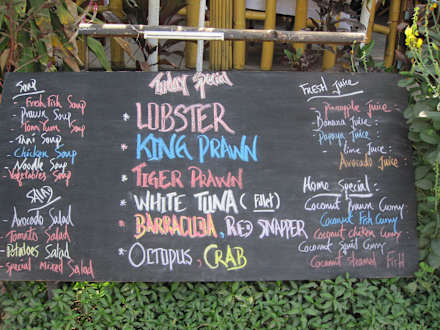 Soup
- Fresh Fish Soup
- Prawn Soup
- Tom Yum Soup
- Thai Soup
- Chicken Soup
- Noodle Soup
- Vegetables Soup
Salad
- Avocado Salad
- Tomatis Salad
- Potatoes Salad
- Special Mixed Salad
Today Special
* LOBSTER
* KING PRAWN
* TIGER PRAWN
* WHITE TUNA (Fillet)
* BARRACUDA, RED SNAPPER
* OCTOPUS, CRAB
Fresh Juice
Pineapple Juice :
Banana Juice :
Papaya Juice :
Lime Juice :
Avocado Juice
Home Special :
Coconut Prawn Curry
Coconut Fish Curry
Coconut chicken Curry
Coconut Squid Curry
Coconut Steamed FisH